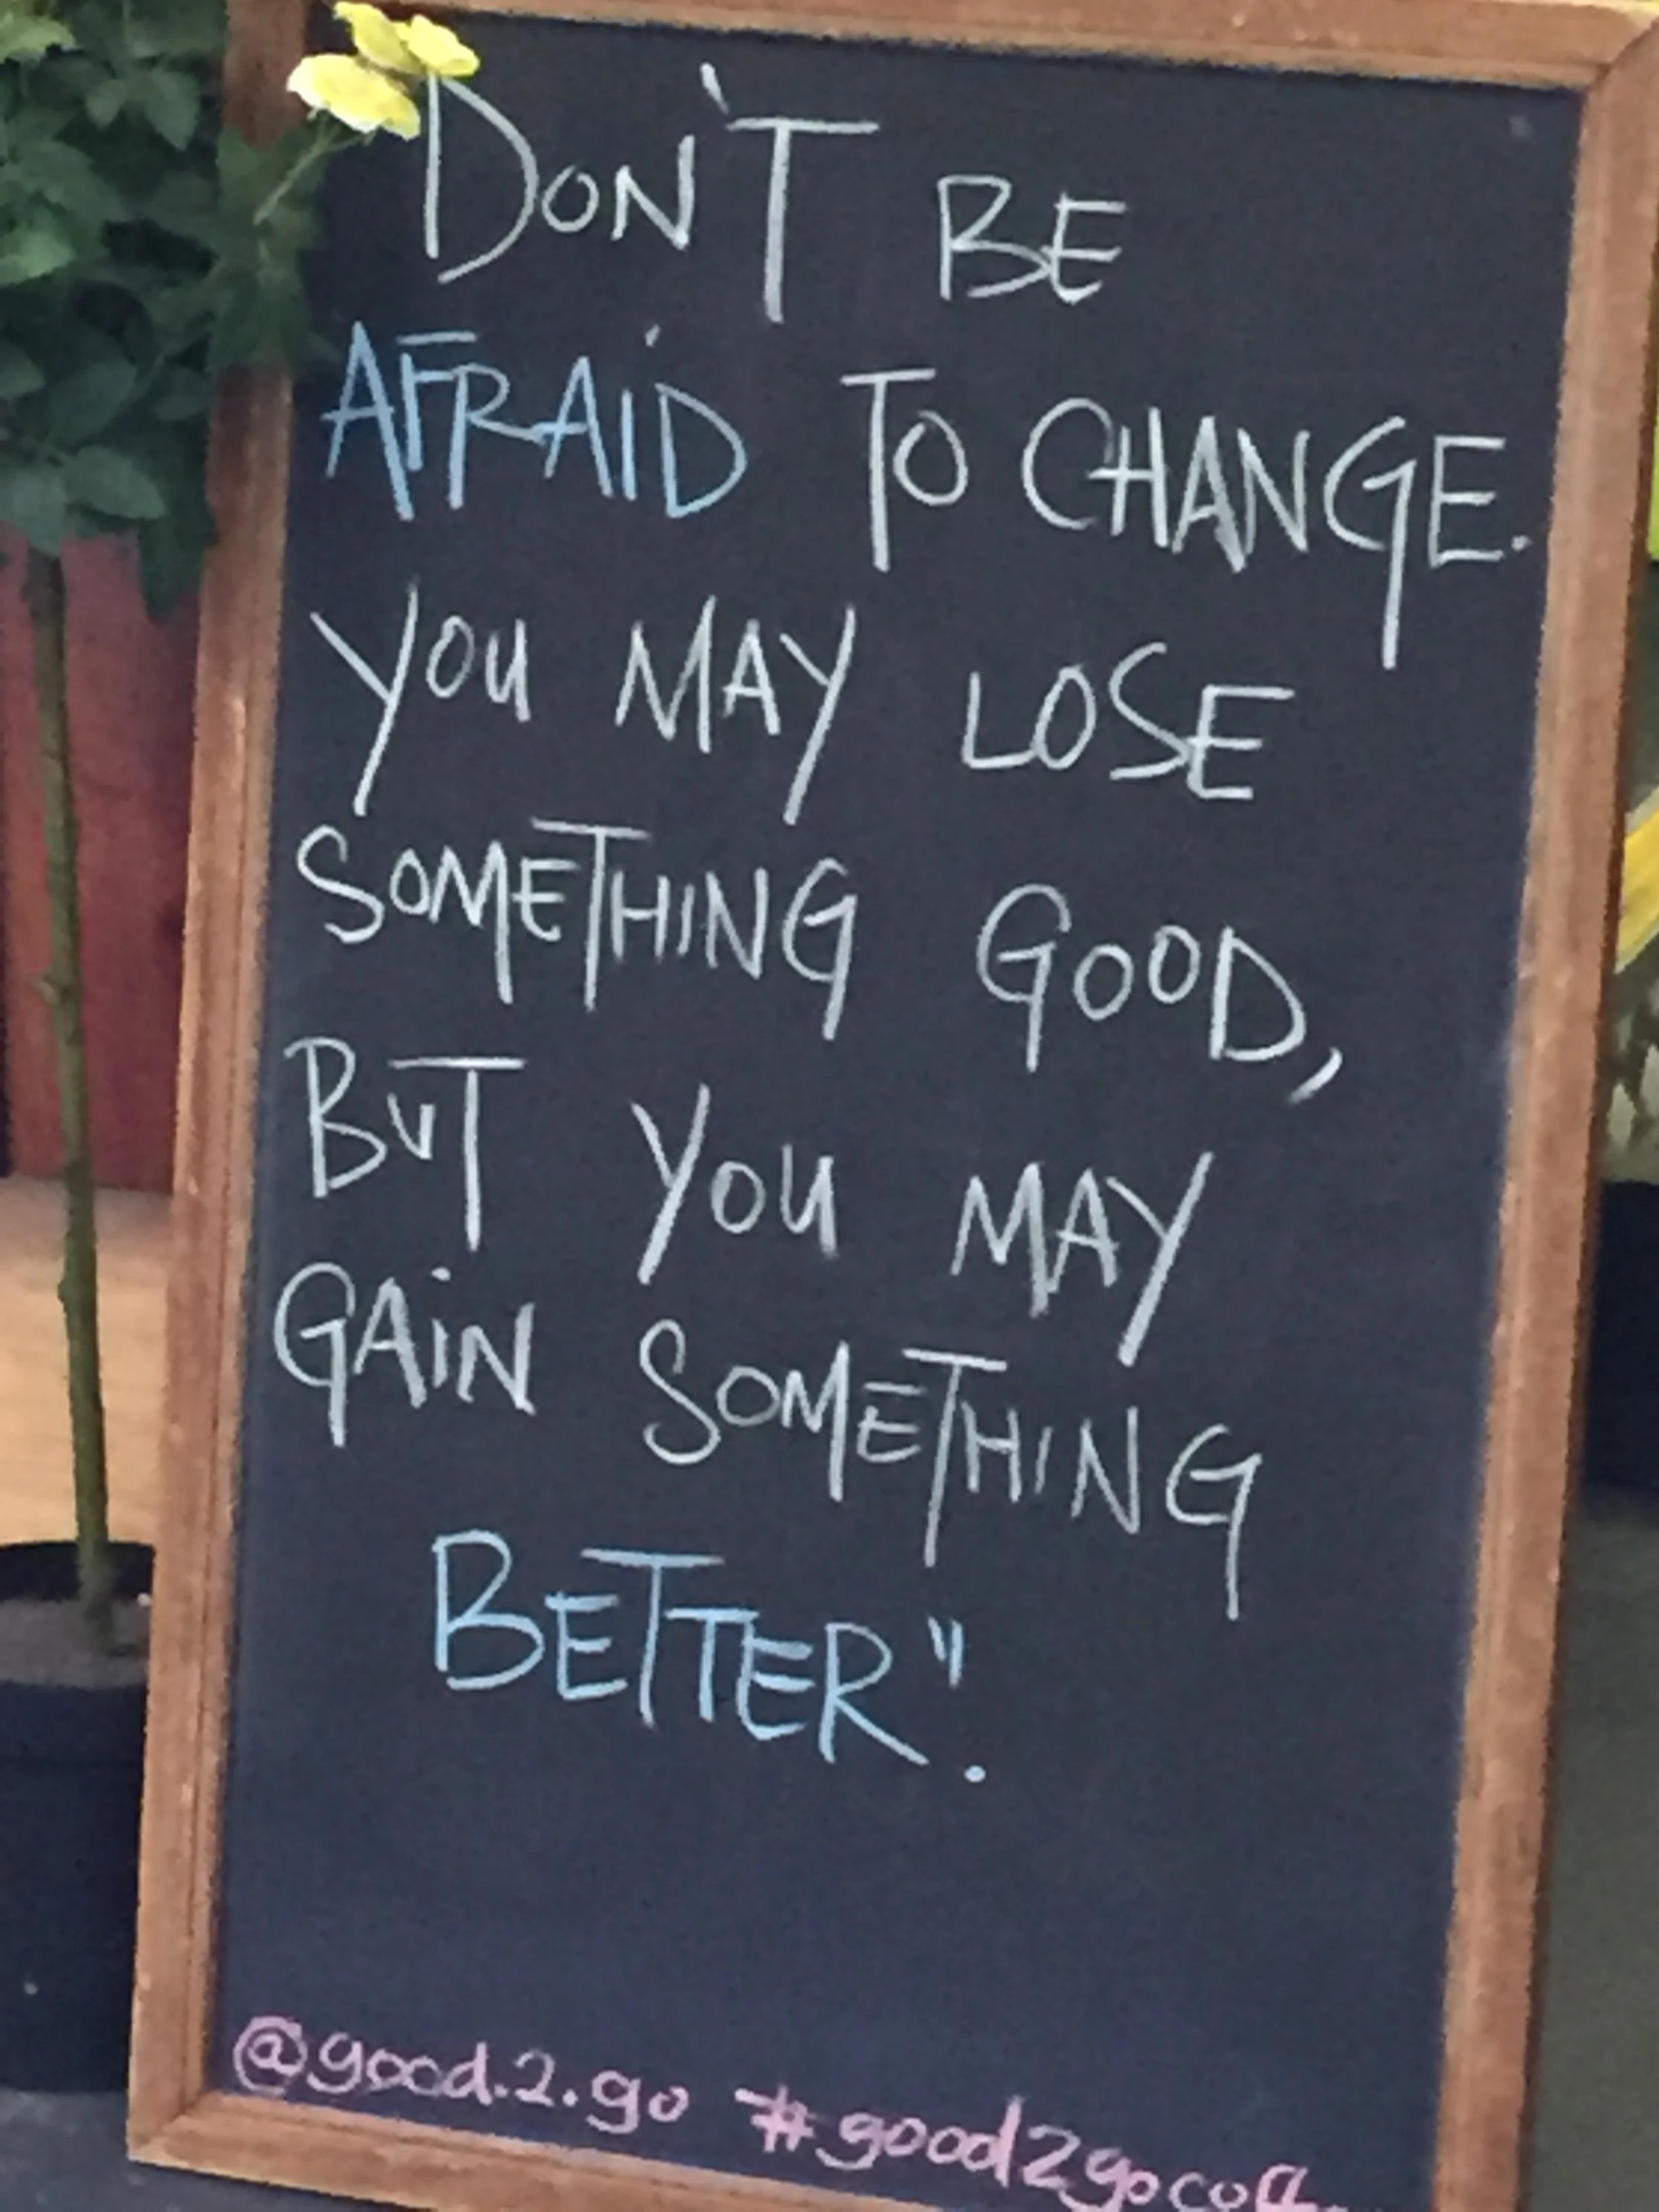 DON'T BE
AFRAID TO CHANGE.
YOU MAY LOSE
SOMETHING GOOD,
BUT YOU MAY
GAIN SOMETHING
BETTER".
@good.2.go